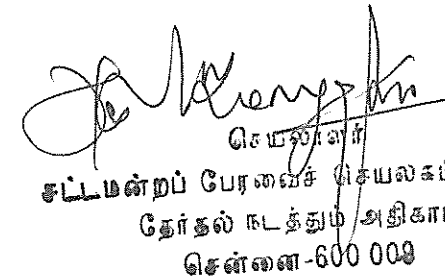 செயலாளர்
சட்டமன்றப் பேரவைச் செயலகம்
தேர்தல் நடத்தும் அதிகாரி
சென்னை-600 009